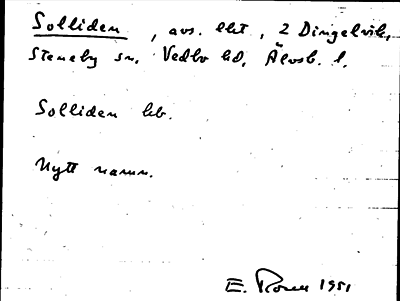 Solliden, avs. lht, 2 Dingelvik,
Steneby sn, Vedbo hd, Älvsb. l.
Solliden hb.
Nytt namn.
E. 1951